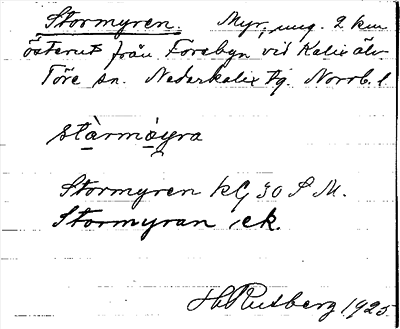 Stormyren. Myr, ung. 2 km
österut från Forebyn vid Kalix älv
Töre sn. Nederkalix tg. Norrb. l
stàrmøyra
Stormyren kG 30 S M.
Stormyran ek.
H. Rutberg 1925